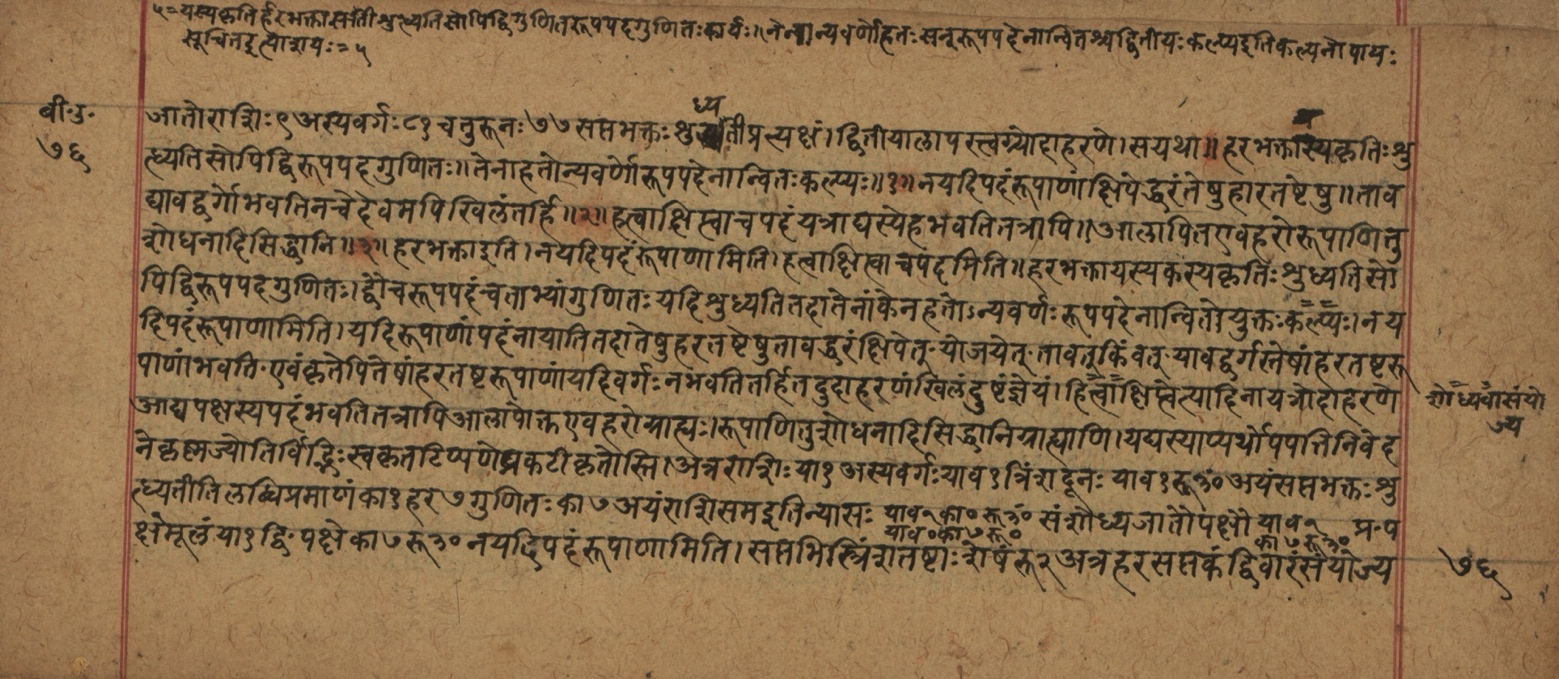 ५=यस्यकृतिर्हरभक्तासतीशुध्यतिसोपिद्विगुणितरूपपदगुणितःकार्यः॥तेनान्यवर्णोहतःसन्रूपपदेनान्वितश्चद्वितीयःकल्प्यइतिकल्पनोपायः
सूचितइत्याशयः=५
बी॰उ॰
७६
जातोराशिः९अस्यवर्गः८१चतुरूनः७७सप्तभक्तःशुध्यतीप्रत्यक्षं।द्वितीयालापस्त्वग्र्योदाहरणे।सयथा॥हरभक्तास्यकृतिःशु
त्ध्यतिसोपिद्विरूपपदगुणितः॥तेनाहतोन्यवर्णोरूपपदेनान्वितःकल्प्यः॥१॥नयदिपदंरूपाणांक्षिपेद्धरंतेषुहारतष्टेषु॥ताव
द्यावद्वर्गोभवतिनचेदेवमपिखिलंतर्हि॥२॥हत्वाक्षिप्त्वाचपदंयत्राद्यस्येहभवतितत्रापि॥आलापितएवहरोरूपाणितु
शोधनादिसिद्धानि॥३॥हरभक्ताइति।नयदिपदंरूपाणामिति।हत्वाक्षिप्त्वाचपदमिति॥हरभक्तायस्यकस्यकृतिःशुध्यतिसो
पिद्विरूपपदगुणितः।द्वौचरूपपदंचताभ्यांगुणितःयदिशुध्यतितदातेनांकेनहतोऽन्यवर्णःरूपपदेनान्वितोयुक्तःकल्प्यः।नय
दिपदंरूपाणामिति।यदिरूपाणांपदंनायातितदातेषुहरतष्टेषुतावद्धरंक्षिपेत्॰योजयेत्॰तावत्किंवत्॰यावद्वर्गस्तेषांहरतष्टरू
पाणांभवति॰एवंकृतेपितेषांहरतष्टरूपाणांयदिवर्गःनभवतितर्हितदुदाहरणंखिलंदुष्टंज्ञेयं।हित्वाक्षिप्त्वेत्यादिनायत्रोदाहरणे
शोध्यवासंयो
ज्य
आद्यपक्षस्यपदंभवतितत्रापिआलापोक्तएवहरोग्राह्यः।रूपाणितुशोधनादिसिद्धानिग्राह्याणि।यद्यस्याप्यर्थोपपत्तिनिवेद
नेकृष्णज्योतिर्विद्भिःस्वकृतटिप्पणेप्रकटीकृतोस्ति।अत्रराशिःया१अस्यवर्गःयाव१त्रिंशदूनःयाव१रू३०अयंसप्तभक्तःशु
त्ध्यतीतिलब्धिप्रमाणंका१हर७गुणितःका७अयंराशिसमइतिन्यासः याव१का०रू३० संशोध्यजातौपक्षौ याव१ प्र॰प
याव०का७रू० का७रू३०
क्षेमूलंया१द्वि॰पक्षेका७रू३०नयदिपदंरूपाणामिति।सप्तभिस्त्रिंशतष्टाःशेषंरू२अत्रहरसप्तकंद्विवारंसंयोज्य
७६